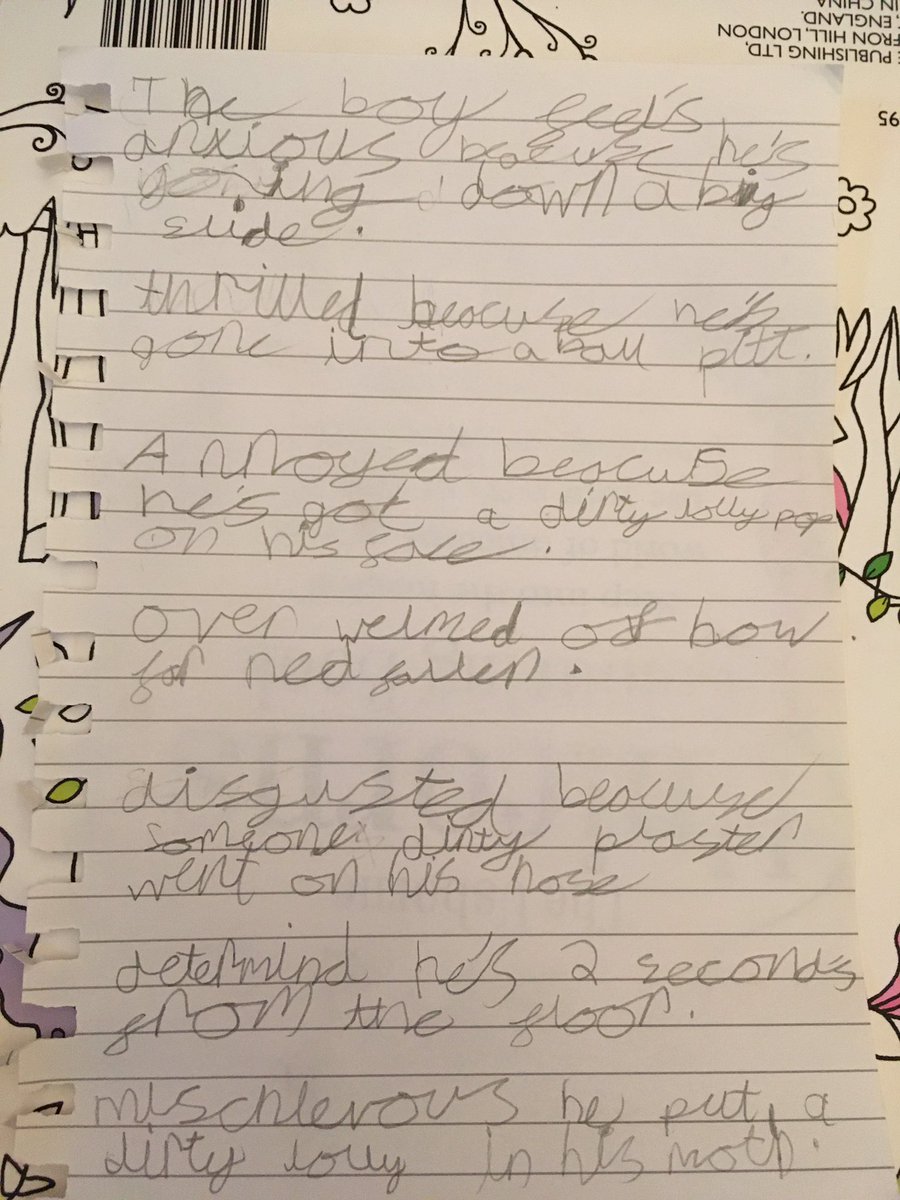 E PUBLISHING LTD,
FRON HILL, LONDON
, ENGLAND.
IN CHINA
95
The boy feed's
anxious beacuse he's
going down a big
slide.
thrilled beacuse he's
gone into a ball pitt.
Annoyed beacuse
he's got a dirty lolly pop
on his face.
over welmed of bow
far hed fallen.
disgusted beacuse
someone dirty plaster
went on his nose
determind he's 2 seconds
from the floor.
mischievous he put a
dirty lolly in his moth.